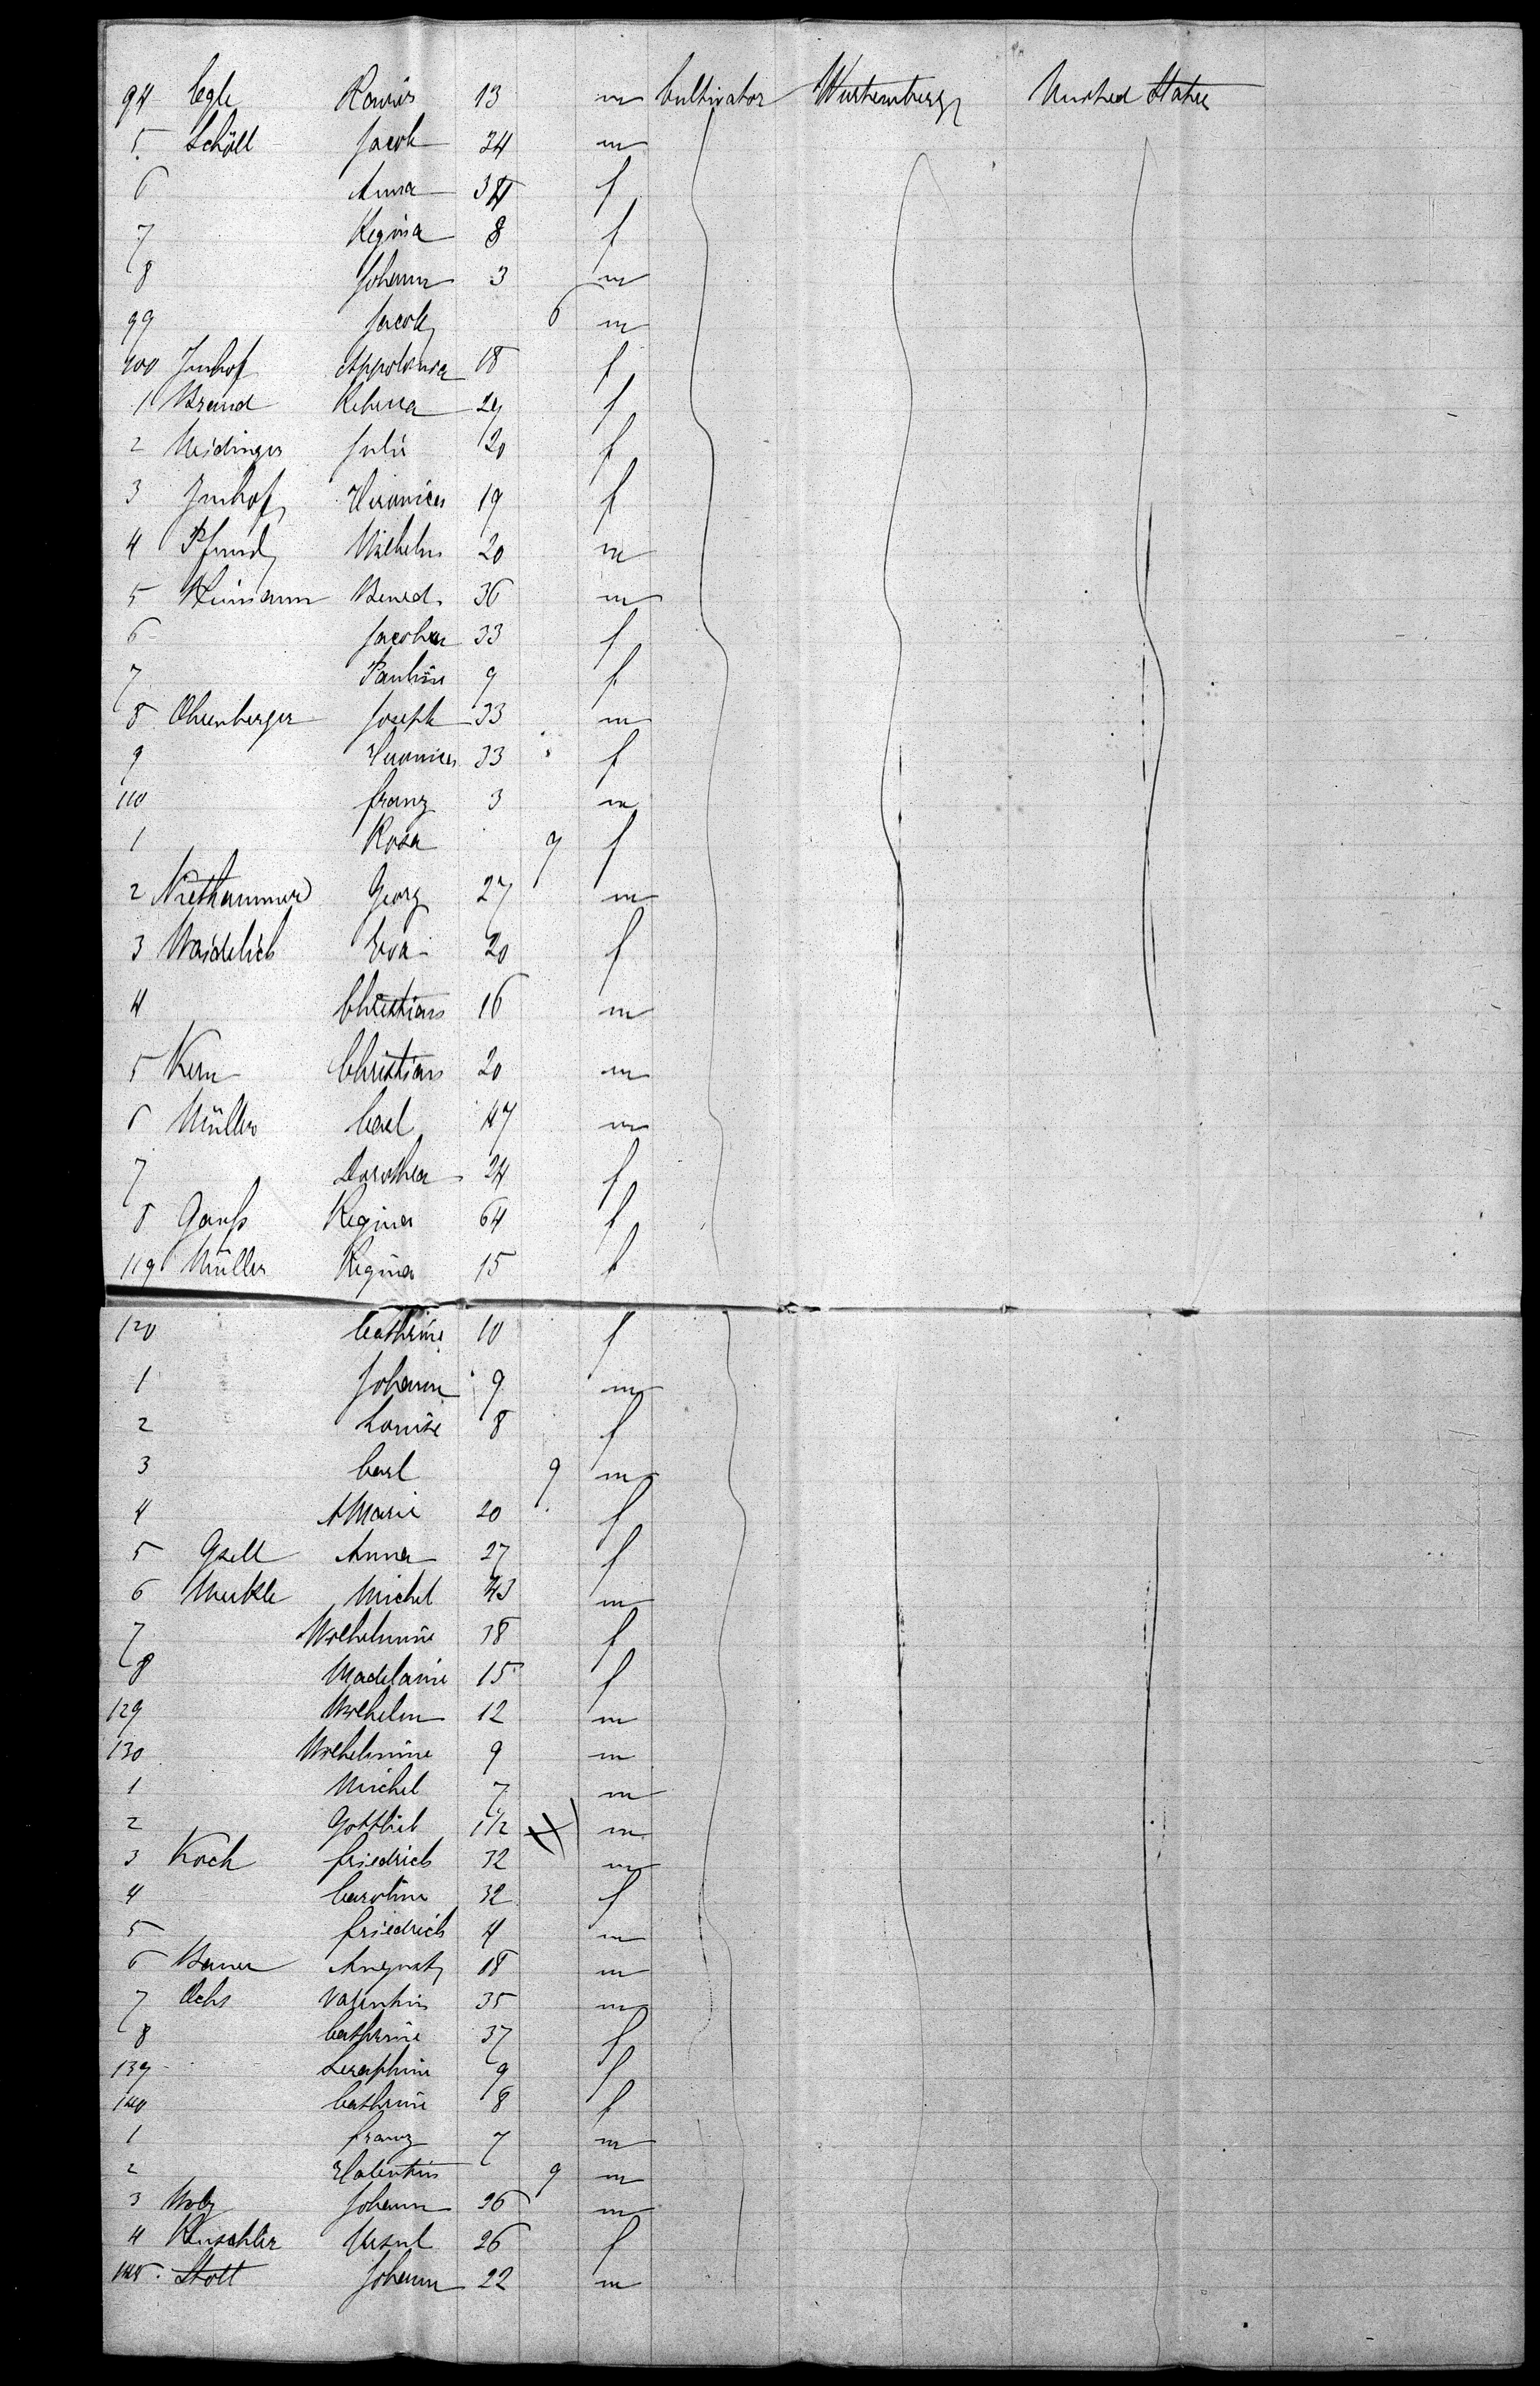 94 Egle 13 m Cultivator Würtemberg United States
5 Schöll Jacob 34 m
6 Anna 34 f
7 Regina 8 f
8 Johann 3 m
99 Jacob 6 m
100 Imhof Appolonia 18 f
1 Brand Rebecca 29 f
2 Neidinger Julie 20 f
3 Imhof Veronica 19 f
4 Pfund Wilhelm 20 m
5 Reimann Bened. 36 m
6 Jacobea 33 f
7 Pauline 9 f
8 Ohrenberger Joseph 33 m
9 Veronica 33 f
110 Franz 3 m
1 Rosa 9 f
2 Niethammer Georg 27 m
3 Waidelich Eva 20 f
4 Christian 16 m
5 Kern Christian 20 m
6 Müller Carl 47 m
7 Dorothea 24 f
8 Ganß Regina 64 f
119 Müller Regina 15 f
120 Cathrine 10 f
1 Johann 9 m
2 Louise 8 f
3 Carl 9 m
4 A Marie 20 f
5 Gsell Anna 27 f
6 Merkle Michel 43 m
7 Wilhelmine 38 f
8 Madelaine 15 f
129 Wilhelm 12 m
130 Wilhelmine 9 m
1 Michel 7 m
2 Gottlieb 1 1/2 m
3 Koch Friedrich 32 m
4 Caroline 32 f
5 Friedrich 4 m
6 Bauer August 18 m
7 Ochs Valentin 35 m
8 Cathrine 37 f
139 Seraphine 9 f
140 Cathrine 8 f
1 Franz 7 m
2 Valentin 9 m
3 Wolz Johann 26 m
4 Ruschler Ursul 26 f
145 Stoll Johann 22 m